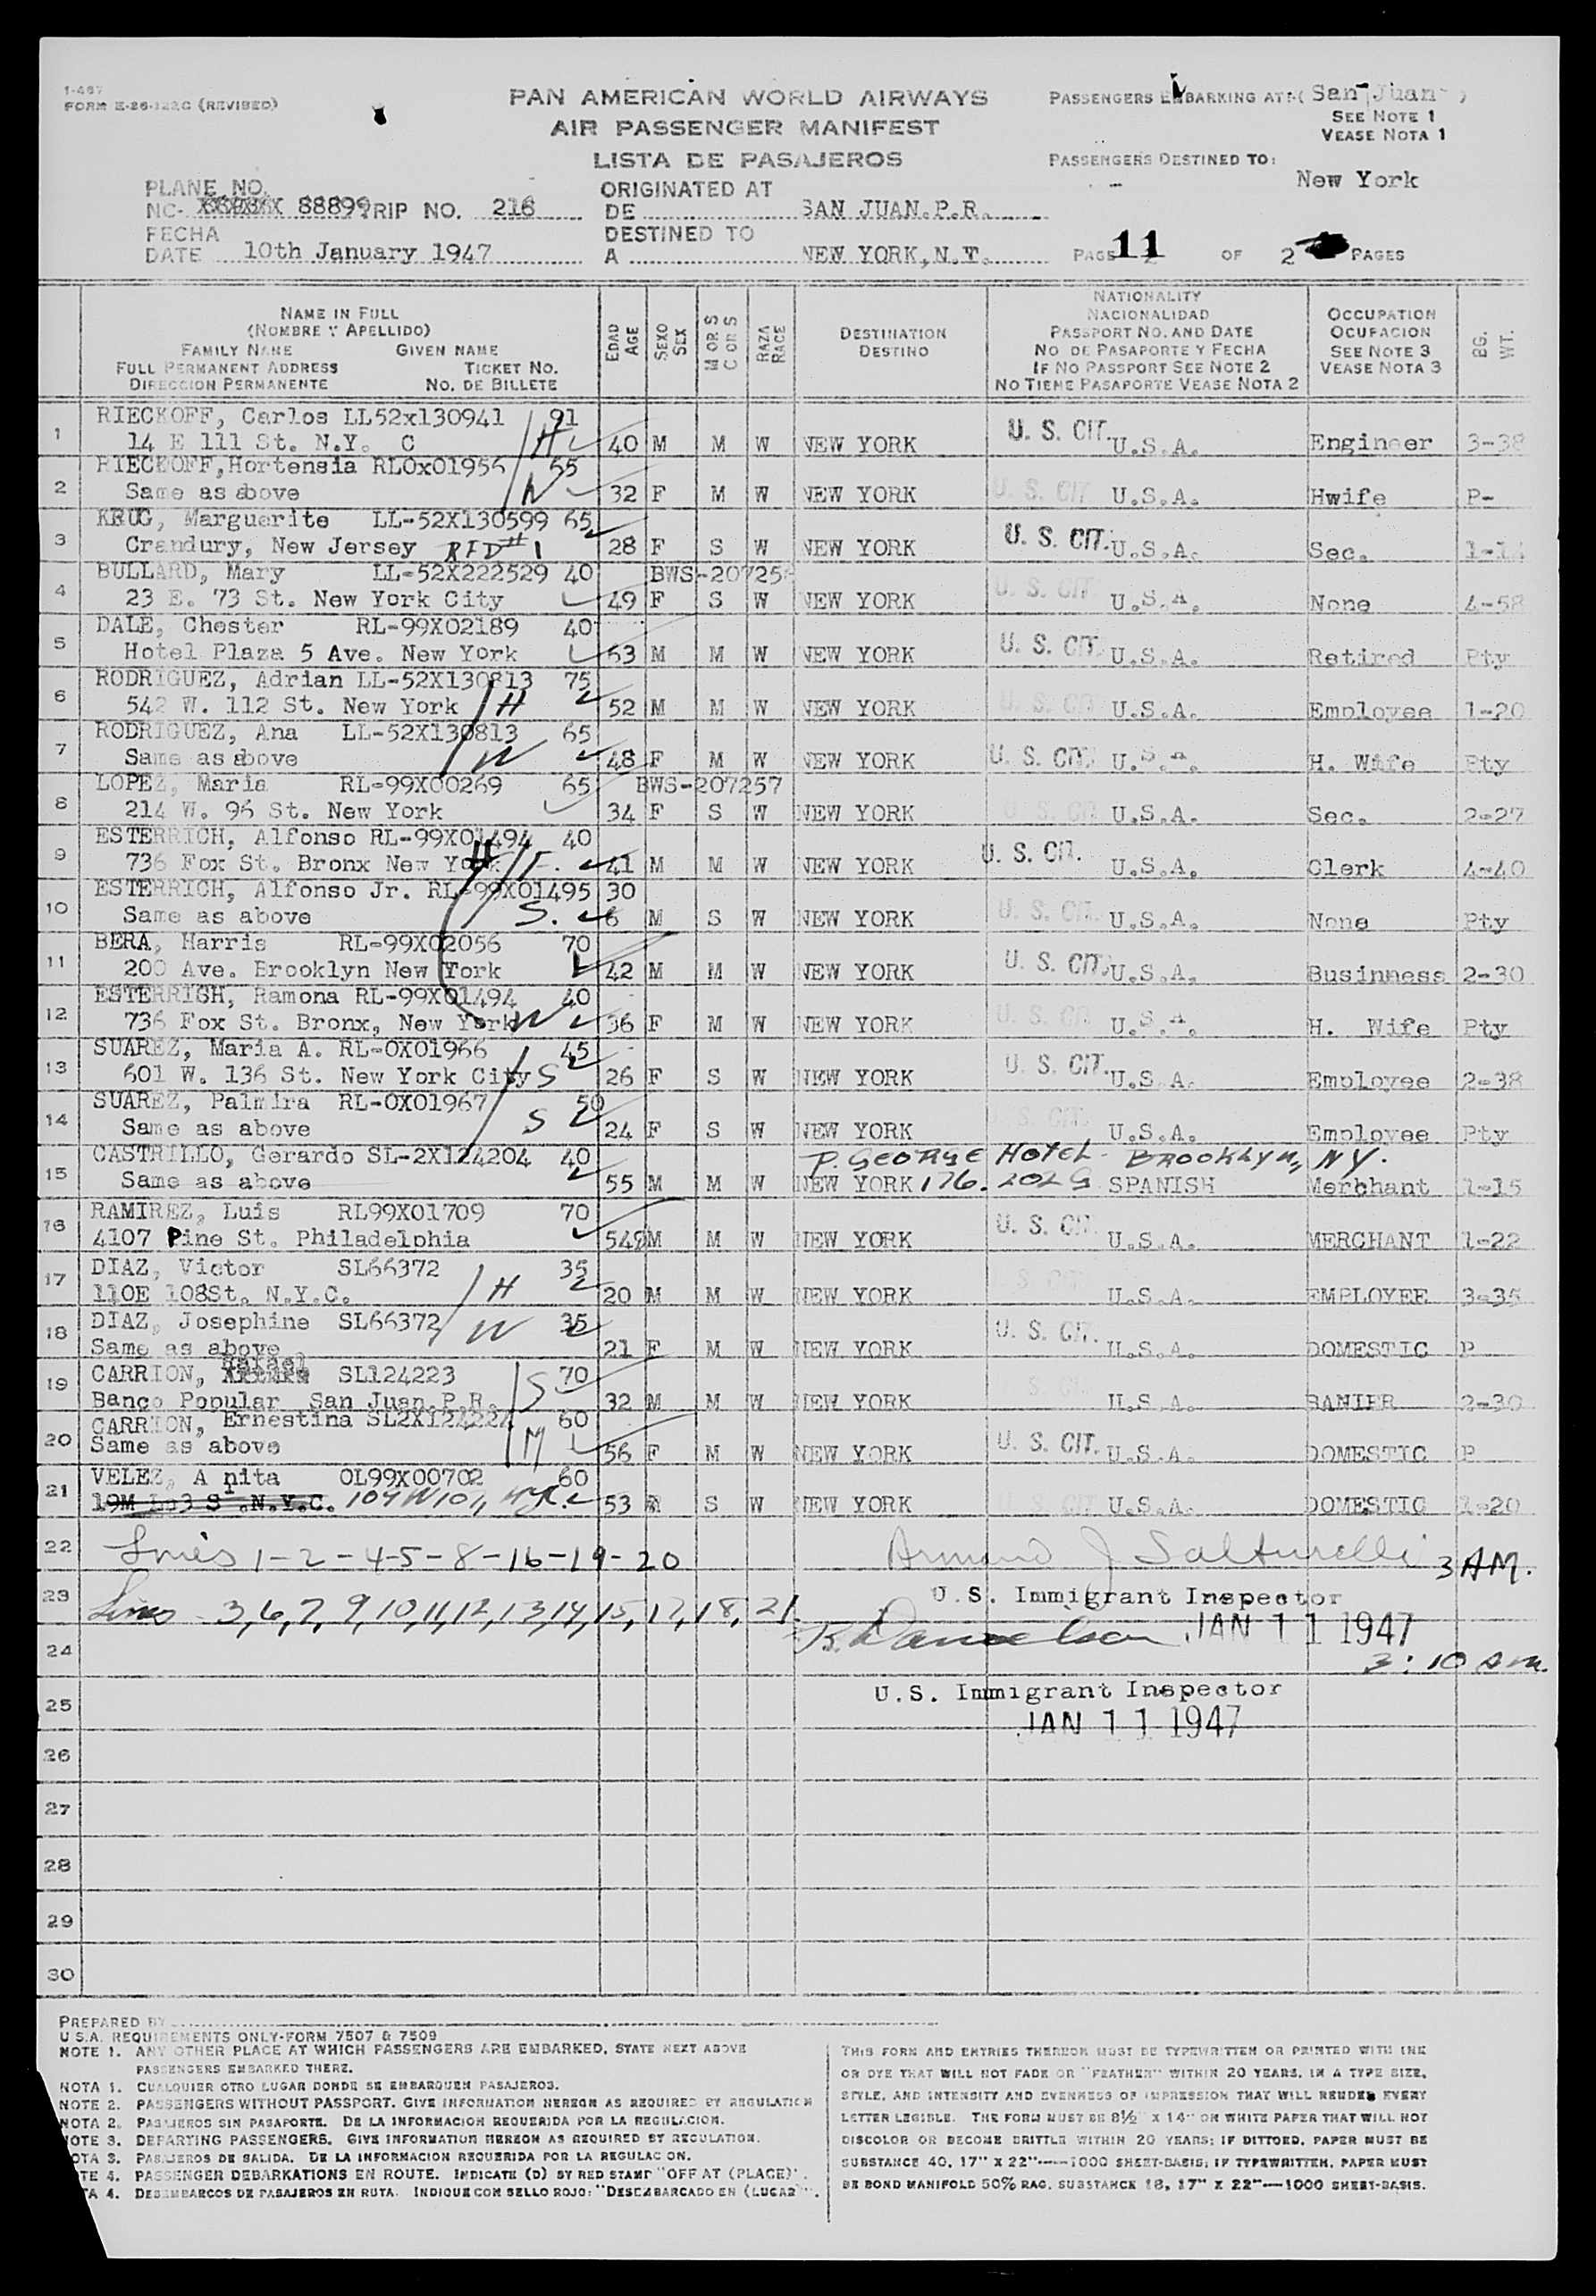 I-467
FORM E-26-122C (REVISED)
PAN AMERICAN WORLD AIRWAYS
AIR PASSENGER MANIFEST
LISTA DE PASAJEROS
PASSENGERS EMBARKING AT:( San Juan )
SEE NOTE 1
VEASE NOTA 1
PASSENGERS DESTINED TO:
New York
PLANE NO.
NC- 88899 TRIP NO. 216
ORIGINATED AT
DE SAN JUAN.P.R.
FECHA
DATE 10th January 1947
DESTINED TO
A NEW YORK,N.Y.
PAGE 11 OF 2 PAGES
NAME IN FULL
(NOMBRE Y APELLIDO)
FAMILY NAME GIVEN NAME
FULL PERMANENT ADDRESS TICKET NO.
DIRECCION PERMANENTE NO. DE BILLETE
EDAD AGE
SEXO SEX
M OR S C OR S
RAZA RACE
DESTINATION
DESTINO
NATIONALITY
NACIONALIDAD
PASSPORT NO. AND DATE
NO DE PASAPORTE Y FECHA
IF NO PASSPORT SEE NOTE 2
NO TIENE PASAPORTE VEASE NOTA 2
OCCUPATION
OCUPACION
SEE NOTE 3
VEASE NOTA 3
BG. WT.
1 RIECKOFF, Carlos LL52x130941 91
14 E 111 St. N.Y. C H 40 M M W NEW YORK U. S. CIT. U.S.A. Engineer 3-38
2 RIECKOFF,Hortensia RLOx01956 65
Same as above W 32 F M W NEW YORK U. S. CIT U.S.A. Hwife P-
3 KRUG, Marguerite LL-52X130599 65
Crandury, New Jersey RFD# 1 28 F S W NEW YORK U. S. CIT. U.S.A. Sec.
4 BULLARD, Mary LL-52X222529 40 BWS-20725
23 E. 73 St. New York City 49 F S W NEW YORK U. S. CIT U.S.A. None 4-58
5 DALE, Chester RL-99X02189 40
Hotel Plaza 5 Ave. New York 63 M M W NEW YORK U. S. CIT. U.S.A. Retired Pty
6 RODRIGUEZ, Adrian LL-52X130813 75
542 W. 112 St. New York H 52 M M W NEW YORK U. S. CIT U.S.A. Employee 1-20
7 RODRIGUEZ, Ana LL-52X130813 65
Same as above W 48 F M W NEW YORK U. S. CIT. U.S.A. H. Wife Pty
8 LOPEZ, Maria RL-99X00269 65 BWS-207257
214 W. 96 St. New York 34 F S W NEW YORK U.S.A. Sec. 2-27
9 ESTERRICH, Alfonso RL-99X01494 40
736 Fox St. Bronx New York H/F. 41 M M W NEW YORK U. S. CIT. U.S.A. Clerk 4-40
10 ESTERRICH, Alfonso Jr. RL-99X01495 30
Same as above S. 6 M S W NEW YORK U. S. CIT. U.S.A. None Pty
11 BERA, Harris RL-99X02056 70
200 Ave. Brooklyn New York 42 M M W NEW YORK U. S. CIT. U.S.A. Businness 2-30
12 ESTERRIGH, Ramona RL-99X01494 40
736 Fox St. Bronx, New York W 36 F M W NEW YORK U. S. CIT U.S.A. H. Wife Pty
13 SUAREZ, Maria A. RL-OX01966 45
601 W. 136 St. New York City S 26 F S W NEW YORK U. S. CIT. U.S.A. Employee 2-38
14 SUAREZ, Palmira RL-OX01967 50
Same as above S 24 F S W NEW YORK U.S.A. Employee Pty
15 CASTRILLO, Gerardo SL-2X124204 40 P. GEORGE HOTEL - BROOKLYN, NY.
Same as above 55 M M W NEW YORK 176. 202 G SPANISH Merchant 1-15
16 RAMIREZ, Luis RL99X01709 70
4107 Pine St. Philadelphia 549 M M W NEW YORK U. S. CIT. U.S.A. MERCHANT 1-22
17 DIAZ, Victor SL66372 35
110E 108St. N.Y.C. H 20 M M W NEW YORK U.S.A. EMPLOYEE 3-35
18 DIAZ, Josephine SL66372 W 35
Same as above 21 F M W NEW YORK U. S. CIT. U.S.A. DOMESTIC P
19 CARRION, Rafael SL124223 70
Banco Popular San Juan.P.R. S 32 M M W NEW YORK U.S.A. BANIER 2-30
20 CARRION, Ernestina SL2X124224 60
Same as above M 56 F M W NEW YORK U. S. CIT. U.S.A. DOMESTIC P
21 VELEZ, Anita OL99X00702 60
N.Y.C. 104 W 101, NYC. 53 S W NEW YORK U.S.A. DOMESTIC 1-20
22 Lines 1-2-4-5-8-16-19-20 Armand J Salturelli 3 AM.
23 Lines 3,6,7,9,10,11,12,13,14,15,17,18,21 U.S. Immigrant Inspector
24 JAN 11 1947
3:10 am.
25 U.S. Immigrant Inspector
JAN 11 1947
26
27
28
29
30
PREPARED BY
U S.A. REQUIREMENTS ONLY-FORM 7507 & 7509
NOTE 1. ANY OTHER PLACE AT WHICH PASSENGERS ARE EMBARKED, STATE NEXT ABOVE
PASSENGERS EMBARKED THERE.
NOTA 1. CUALQUIER OTRO LUGAR DONDE SE EMBARQUEN PASAJEROS.
NOTE 2. PASSENGERS WITHOUT PASSPORT. GIVE INFORMATION HEREON AS REQUIRED BY REGULATION
NOTA 2. PASAJEROS SIN PASAPORTE. DE LA INFORMACION REQUERIDA POR LA REGULACION.
NOTE 3. DEPARTING PASSENGERS. GIVE INFORMATION HEREON AS REQUIRED BY REGULATION.
OTA 3. PASAJEROS DE SALIDA. DE LA INFORMACION REQUERIDA POR LA REGULAC ON.
TE 4. PASSENGER DEBARKATIONS EN ROUTE. INDICATE (D) BY RED STAMP "OFF AT (PLACE)".
TA 4. DESEMBARCOS DE PASAJEROS EN RUTA. INDIQUE CON SELLO ROJO: "DESEMBARCADO EN (LUGAR)".
THIS FORM AND ENTRIES THEREON MUST BE TYPEWRITTEN OR PRINTED WITH INK
OR DYE THAT WILL NOT FADE OR "FEATHER" WITHIN 20 YEARS, IN A TYPE SIZE,
STYLE, AND INTENSITY AND EVENNESS OF IMPRESSION THAT WILL RENDER EVERY
LETTER LEGIBLE. THE FORM MUST BE 8½" X 14" ON WHITE PAPER THAT WILL NOT
DISCOLOR OR BECOME BRITTLE WITHIN 20 YEARS; IF DITTOED, PAPER MUST BE
SUBSTANCE 40, 17" X 22"—1000 SHEET-BASIS; IF TYPEWRITTEN, PAPER MUST
BE BOND MANIFOLD 50% RAG, SUBSTANCE 18, 17" X 22"—1000 SHEET-BASIS.